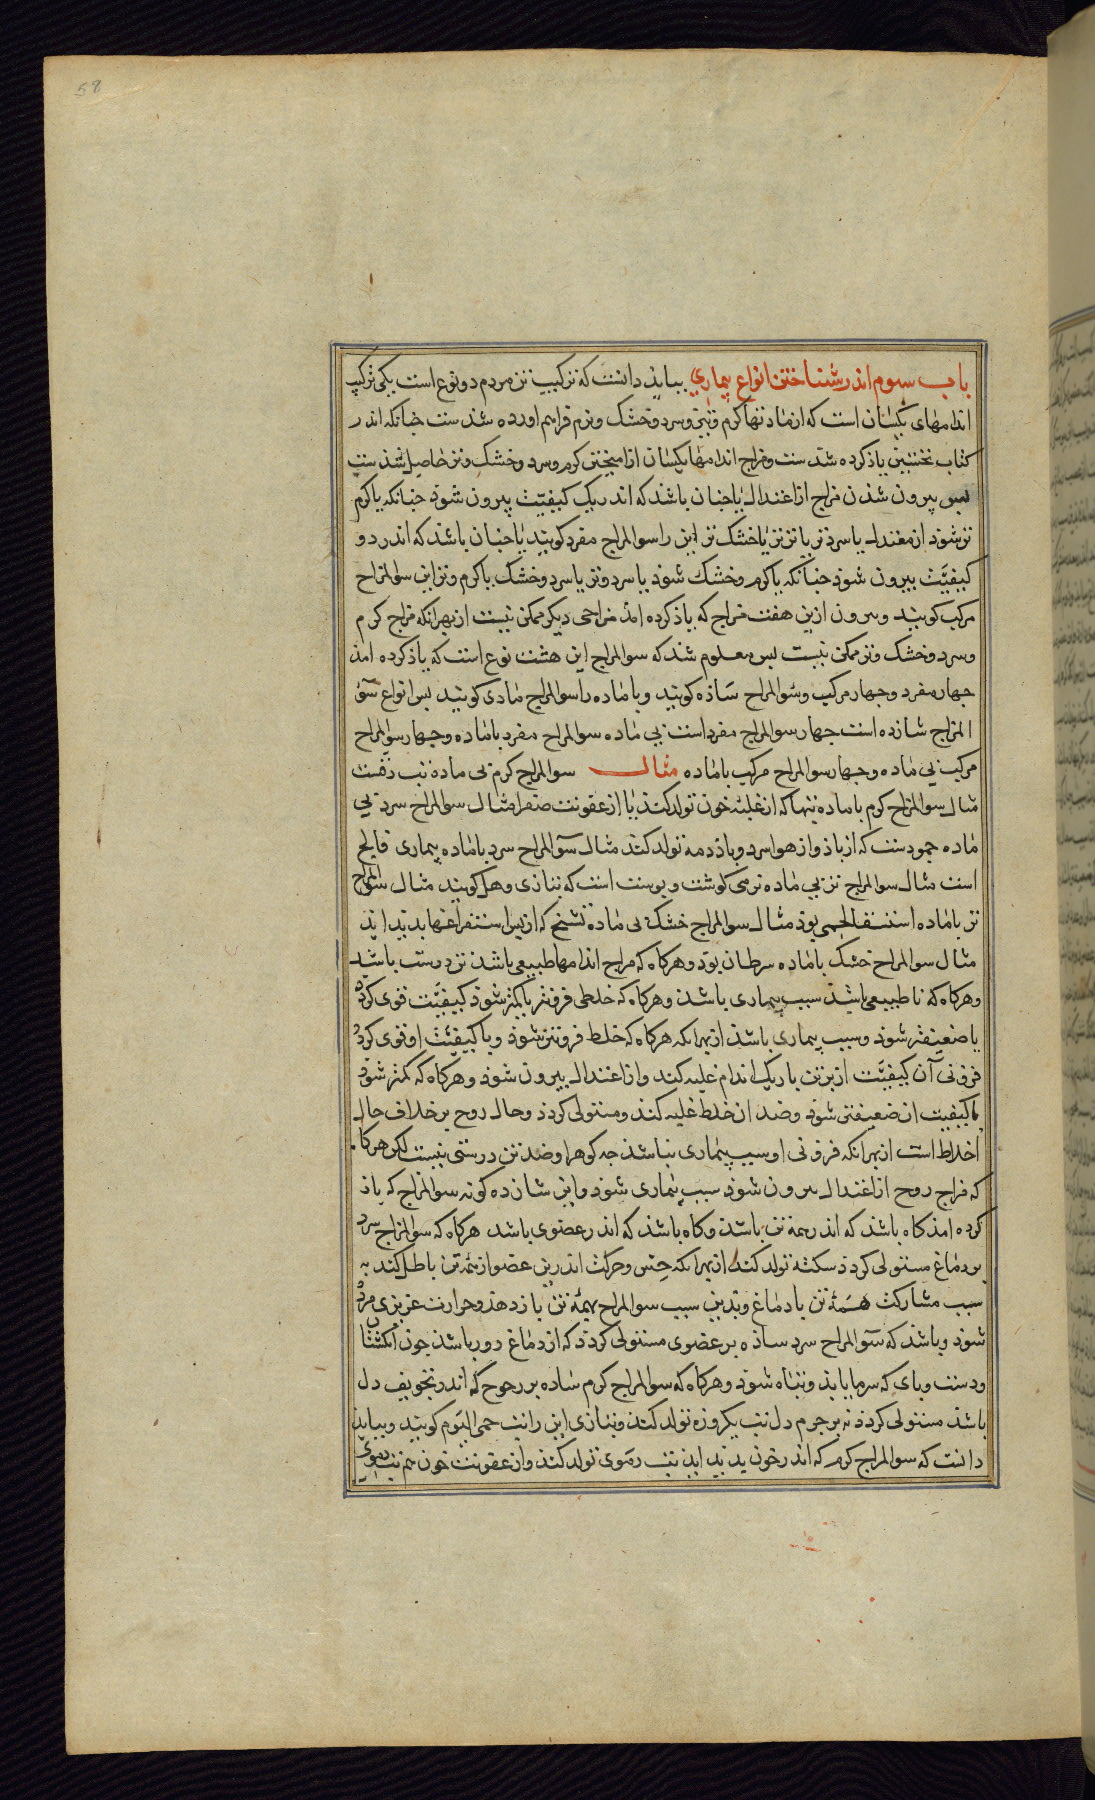 58
باب سوم اندر شناختن انواع بیماری بباید دانست که ترکیب تن مردم دو نوع است یکی ترکیب
اندامهای یکسان است که از مادتها گرم و تیز و سرد و خشک و نرم فراهم اورده شدست چنانکه اندر
کتاب نخستین یاد کرده شدست و مزاج اندامها یکسان از امیختن گرم و سرد و خشک و تر حاصل شدست
پس بیرون شدن مزاج از اعتدال یا چنان باشد که اندر یک کیفیت بیرون شود چنانکه یا گرم
تر شود از معتدل یا سردتر یا ترتر یا خشک تر این را سوالمزاج مفرد کویند یا چنان باشد که اندر دو
کیفیت بیرون شود چنانکه یا گرم و خشک شود یا سرد و تر یا سرد و خشک یا گرم و تر این سوالمزاج
مرکب کویند و بیرون ازین هفت مزاج که یاد کرده امد مزاجی دیگر ممکن نیست از بهر انکه مزاج گرم
و سرد و خشک و تر ممکن نیست پس معلوم شد که سوالمزاج این هشت نوع است که یاد کرده امد
چهار مفرد و چهار مرکب و سوالمزاج ساده کویند و با ماده را سوالمزاج مادی کویند پس انواع سو
المزاج شانزده است چهار سوالمزاج مفرد است بی ماده سوالمزاج مفرد با ماده و چهار سوالمزاج
مرکب بی ماده و چهار سوالمزاج مرکب با ماده مثال سوالمزاج گرم بی ماده تب دقست
مثال سوالمزاج گرم با ماده تبها که از غلبه خون تولد کند یا از عفونت صفرا مثال سوالمزاج سرد بی
ماده جمودست که از باد و از هوا سرد و باد دمه تولد کند مثال سوالمزاج سرد با ماده بیماری فالج
است مثال سوالمزاج تر بی ماده نرمی گوشت و پوست است که بتازی وهل کویند مثال سوالمزاج
تر با ماده استسقا لحمی بود مثال سوالمزاج خشک بی ماده تشنج که از پس استفراغها پدید اید
مثال سوالمزاج خشک با ماده سرطان بود و هرکاه که مزاج اندامها طبیعی باشد تن درست باشد
و هرکاه که نا طبیعی باشد سبب بیماری باشد و هرکاه که خلطی فزونتر یا کمتر شود کیفیت قوی کردد
یا ضعیفتر شود و سبب بیماری باشد از بهر انکه هرکاه که خلط فزونتر شود و یا کیفیت او قوی کردد
فزونی آن کیفیت از برتن یا بر یک اندام غلبه کند و از اعتدال بیرون شود و هرکاه که کمتر شود
یا کیفیت ان ضعیفتر شود و ضد ان خلط غلبه کند و مستولی کردد و حال روح بر خلاف حال
اخلاط است از بهر انکه فزونی او سبب بیماری نباشد چه گوهر او ضد تن درستی نیست لکن هرکاه
که مزاج روح از اعتدال بیرون شود سبب بیماری شود و این شانزده کونه سوالمزاج که یاد
کرده امد کاه باشد که اندر همه تن باشد و کاه باشد که اندر عضوی باشد هرکاه که سوالمزاج سرد
بر دماغ مستولی کردد سکته تولد کند از بهر انکه حس و حرکت اندرین عضو از همه تن باطل کند به
سبب مشارکت همه تن با دماغ و بدین سبب سوالمزاج بهمه تن باز دهد و حرارت عزیزی مرده
شود و باشد که سوالمزاج سرد ساده بر عضوی مستولی کردد که از دماغ دور باشد چون انگشتا
و دست و پای که سرما یابد و تباه شود و هرکاه که سوالمزاج گرم ساده بر روح که اندر تجویف دل
باشد مستولی کردد نه بر جرم دل تب یکروزه تولد کند و بتازی این را تب حمی الیوم کویند و بباید
دانست که سوالمزاج گرم که اندر خون پدید اید تب دموی تولد کند و از عفونت خون هم تب دموی